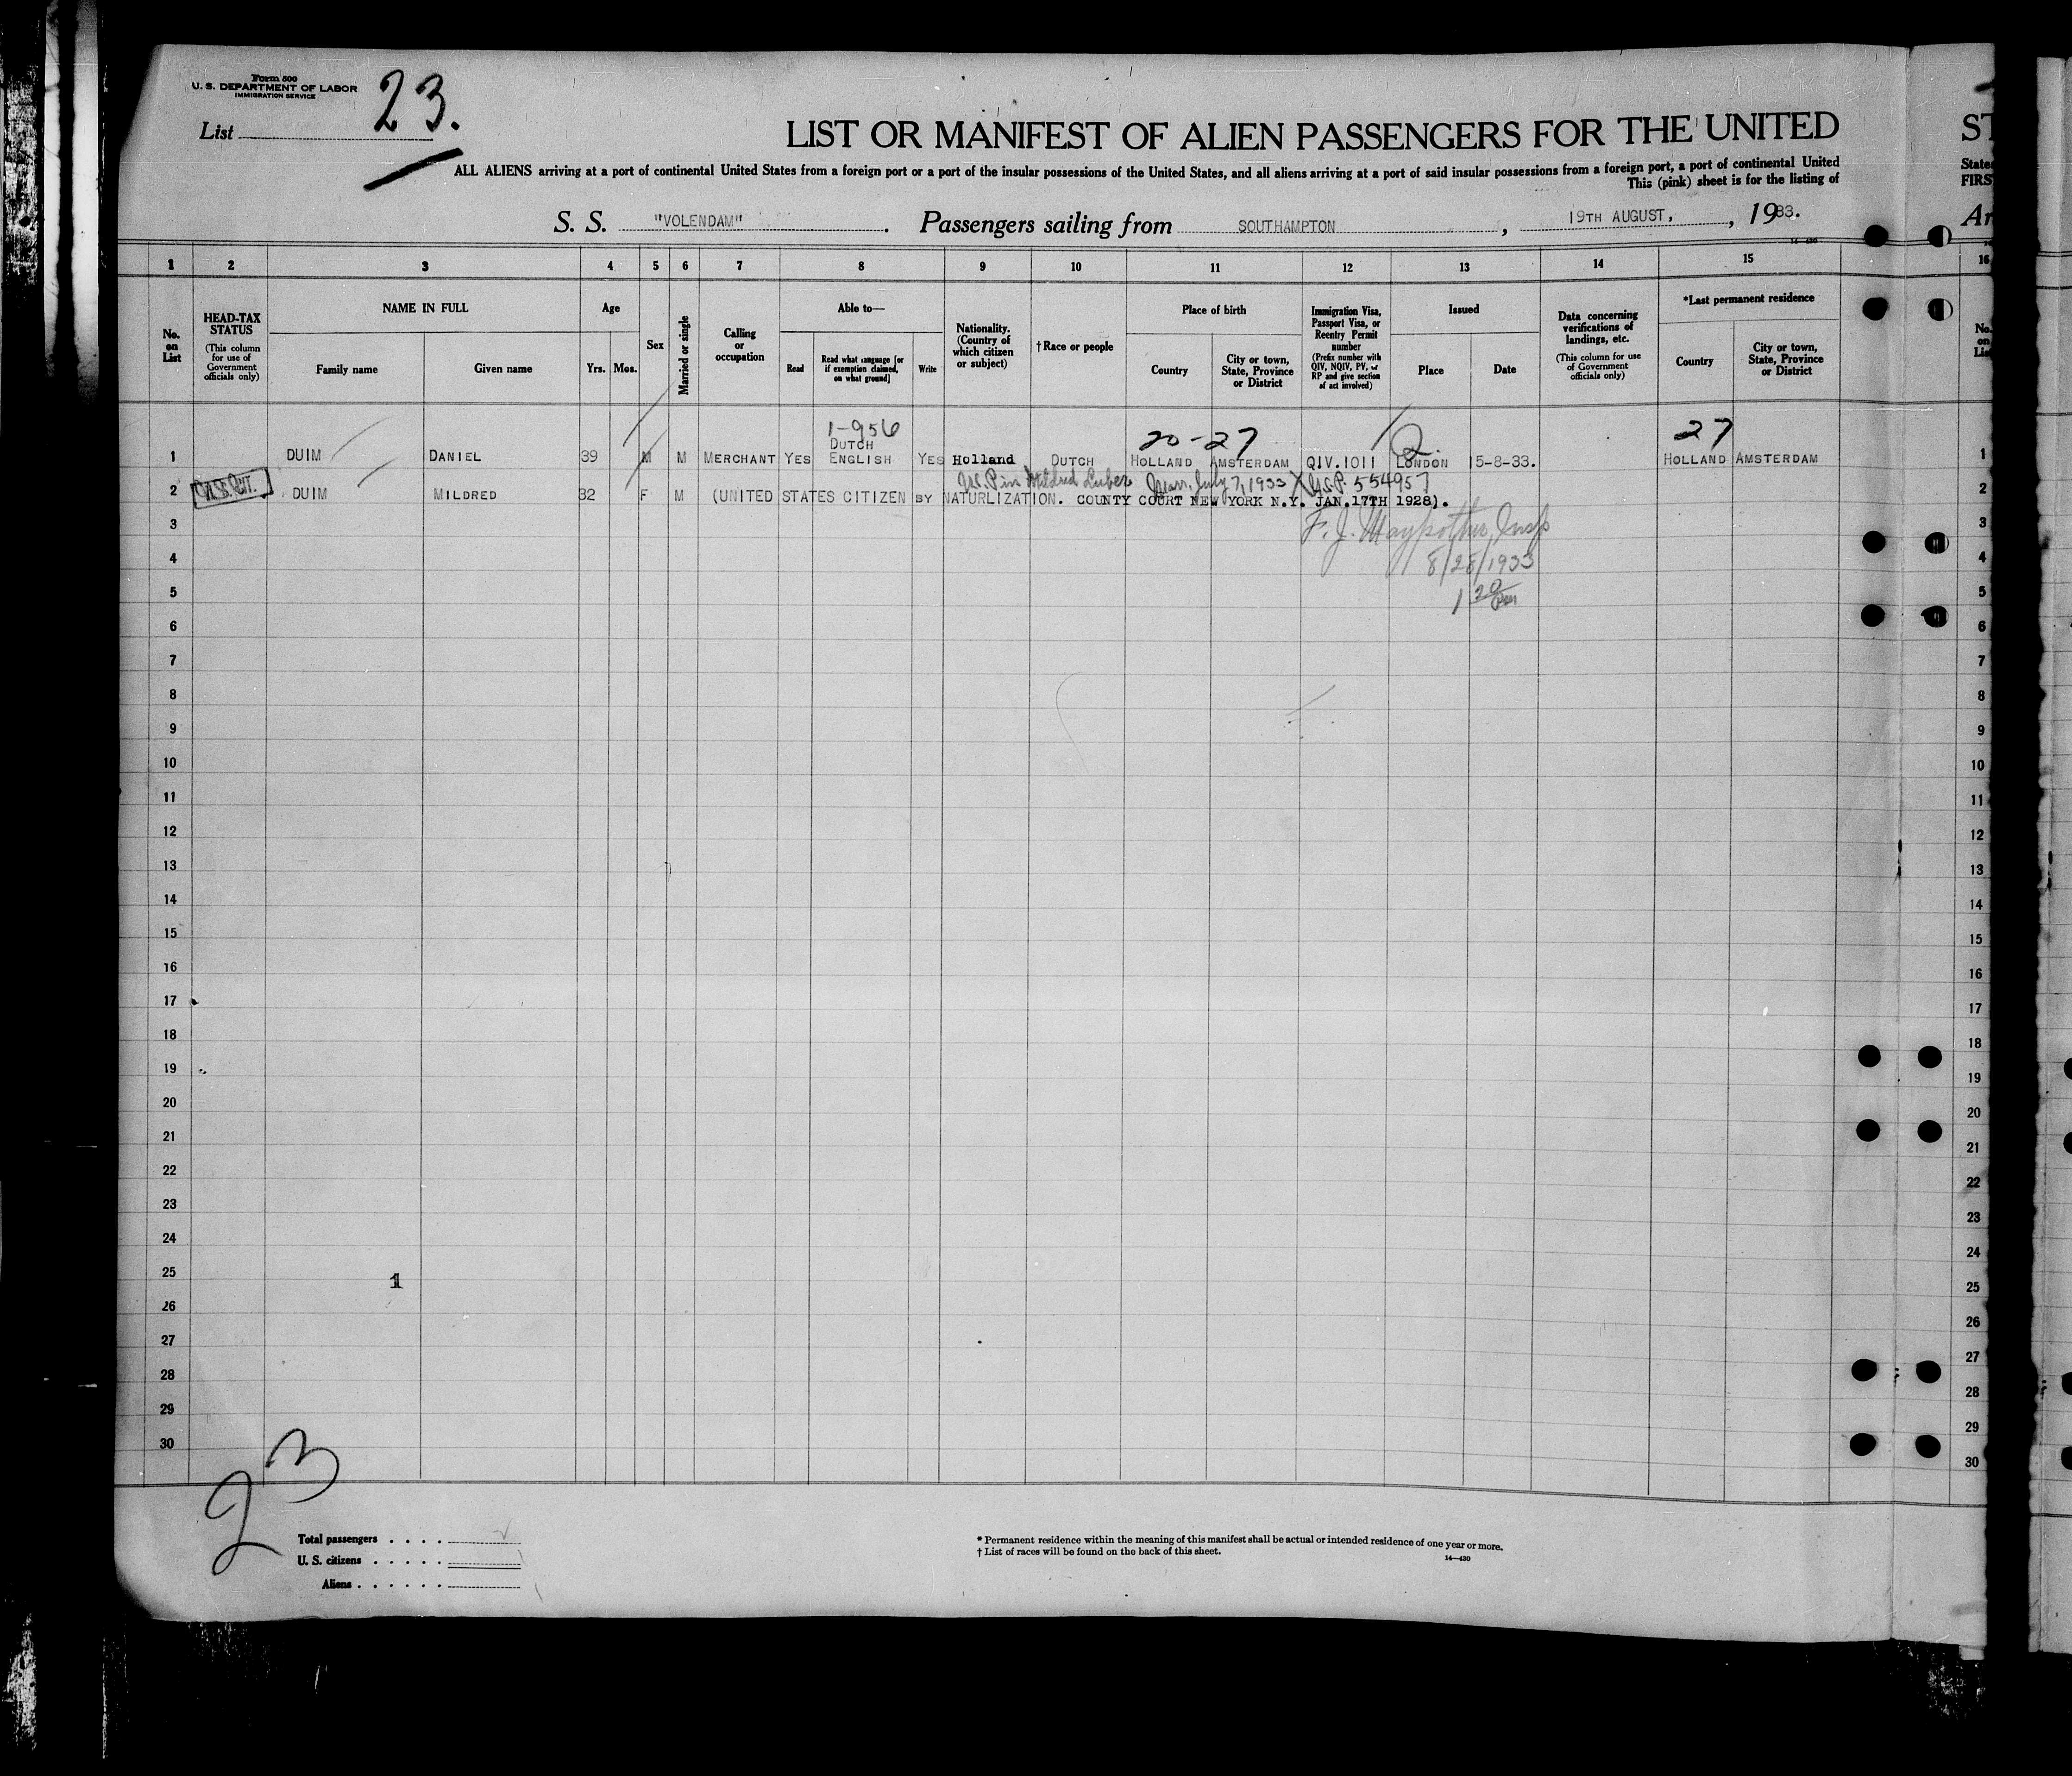 Form 500
U. S. DEPARTMENT OF LABOR
IMMIGRATION SERVICE
List 23.
LIST OR MANIFEST OF ALIEN PASSENGERS FOR THE UNITED
ST
ALL ALIENS arriving at a port of continental United States from a foreign port or a port of the insular possessions of the United States, and all aliens arriving at a port of said insular possessions from a foreign port, a port of continental United
States
This (pink) sheet is for the listing of
FIRS
S. S. "VOLENDAM" . Passengers sailing from SOUTHAMPTON , 19TH AUGUST, , 1933.
Ar
14—430
1 2 3 4 5 6 7 8 9 10 11 12 13 14 15 16
No. on List
HEAD-TAX STATUS
(This column for use of Government officials only)
NAME IN FULL
Family name
Given name
Age
Yrs. Mos.
Sex
Married or single
Calling or occupation
Able to—
Read
Read what language [or if exemption claimed, on what ground]
Write
Nationality. (Country of which citizen or subject)
†Race or people
Place of birth
Country
City or town, State, Province or District
Immigration Visa, Passport Visa, or Reentry Permit number
(Prefix number with QIV, NQIV, PV, or RP and give section of act involved)
Issued
Place
Date
Data concerning verifications of landings, etc.
(This column for use of Government officials only)
*Last permanent residence
Country
City or town, State, Province or District
No. on Lis
1-956 20-27 27
1 DUIM DANIEL 39 M M MERCHANT YES DUTCH ENGLISH YES Holland DUTCH HOLLAND AMSTERDAM QIV.1011 LONDON 15-8-33. HOLLAND AMSTERDAM 1
U.S.P. in Mildred Luber Marr. July 7, 1933 U.S.P. 554957
2 U.S. CIT. DUIM MILDRED 32 F M (UNITED STATES CITIZEN BY NATURLIZATION. COUNTY COURT NEW YORK N.Y. JAN.17TH 1928). 2
3 F. J. Maypother, Insp 3
4 8/28/1933 4
5 1 20 pm 5
6 6
7 7
8 8
9 9
10 10
11 11
12 12
13 13
14 14
15 15
16 16
17 17
18 18
19 19
20 20
21 21
22 22
23 23
24 24
25 1 25
26 26
27 27
28 28
29 29
30 30
23
Total passengers . . . .
U. S. citizens . . . . . 1
Aliens . . . . . . 1
* Permanent residence within the meaning of this manifest shall be actual or intended residence of one year or more.
† List of races will be found on the back of this sheet.
14—430